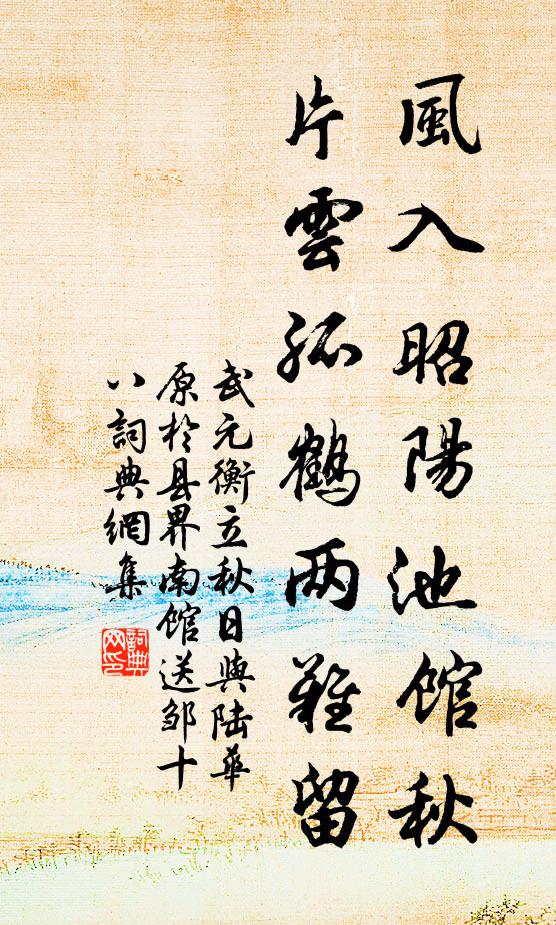 風入昭陽池馆秋
片雲孤鶴两難留
武元衡立秋日與陆華
原於县界南馆送邹十
八詞典網集
詞典
网印